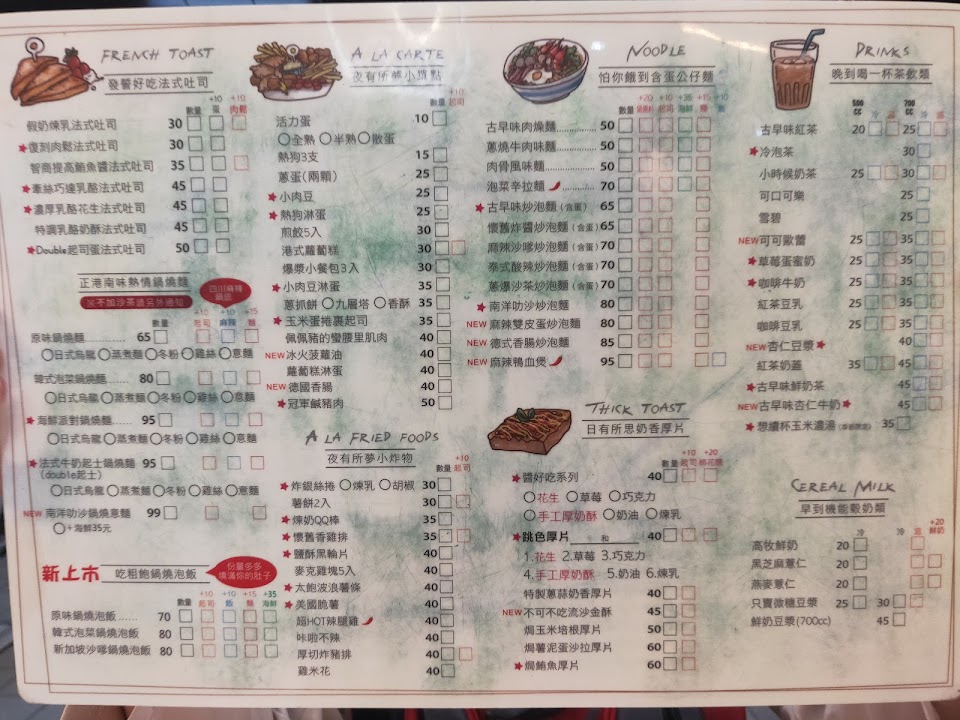 FRENCH TOAST
發誓好吃法式吐司
數量 +10蛋 +10肉鬆
假奶煉乳法式吐司 30
★復刻肉鬆法式吐司 30
智商提高鮪魚醬法式吐司 35
★牽絲巧達乳酪法式吐司 45
★濃厚乳酪花生法式吐司 45
特調乳酪奶酥法式吐司 45
★Double起司蛋法式吐司 50
正港南味熱情鍋燒麵
※不加沙茶請另外通知
四川麻辣鍋底
數量 +10起司 +10麻辣 +15麵
原味鍋燒麵...... 65
○日式烏龍○蒸煮麵○冬粉○雞絲○意麵
韓式泡菜鍋燒麵...... 80
○日式烏龍○蒸煮麵○冬粉○雞絲○意麵
★海鮮派對鍋燒麵 95
○日式烏龍○蒸煮麵○冬粉○雞絲○意麵
★法式牛奶起士鍋燒麵 95
(double起士)
○日式烏龍○蒸煮麵○冬粉○雞絲○意麵
NEW 南洋叻沙鍋燒意麵 99
○+海鮮35元
新上市 吃粗飽鍋燒泡飯
份量多多
填滿你的肚子
數量 +10起司 +10飯 +15麵 +35海鮮
原味鍋燒泡飯...... 70
韓式泡菜鍋燒泡飯 80
新加坡沙嗲鍋燒泡飯 80
A LA CARTE
夜有所夢小頭點
數量 +10起司
活力蛋 10
○全熟 ○半熟○散蛋
熱狗3支 15
蔥蛋(兩顆) 25
★小肉豆 25
★熱狗淋蛋 25
煎餃5入 30
港式蘿蔔糕 30
爆漿小餐包3入 30
★小肉豆淋蛋 35
蔥抓餅○九層塔○香酥 35
★玉米蛋捲裹起司 35
佩佩豬的蠻腰里肌肉 40
NEW 冰火菠蘿油 40
蘿蔔糕淋蛋 40
NEW 德國香腸 40
★冠軍鹹豬肉 50
A LA FRIED FOODS
夜有所夢小炸物
數量 +10起司
★炸銀絲捲○煉乳○胡椒 30
薯餅2入 30
★煉奶QQ棒 35
★懷舊香雞排 35
★鹽酥黑輪片 40
麥克雞塊5入 40
★太飽波浪薯條 40
★美國脆薯 40
超HOT辣腿雞 40
咔啦不辣 40
厚切炸豬排 40
雞米花 40
NOODLE
怕你餓到含蛋公仔麵
數量 +20 +10起司 +35海鮮 +15麵 +10
古早味肉燥麵............ 50
蔥燒牛肉味麵............ 50
肉骨風味麵............ 50
泡菜辛拉麵............ 70
★古早味炒泡麵(含蛋) 65
懷舊炸醬炒泡麵(含蛋) 65
麻辣沙嗲炒泡麵(含蛋) 70
泰式酸辣炒泡麵(含蛋) 70
蔥爆沙茶炒泡麵(含蛋) 70
★南洋叻沙炒泡麵 80
NEW 麻辣雙皮蛋炒泡麵 80
NEW 德式香腸炒泡麵 85
NEW 麻辣鴨血煲 95
THICK TOAST
日有所思奶香厚片
數量 +10起司 +20
★醬好吃系列 40
○花生 ○草莓 ○巧克力
○手工厚奶酥 ○奶油 ○煉乳
★跳色厚片____和____ 40
1.花生 2.草莓 3.巧克力
4.手工厚奶酥 5.奶油 6.煉乳
特製蔥蒜奶香厚片 40
NEW 不可不吃流沙金酥 45
焗玉米培根厚片 50
焗薯泥蛋沙拉厚片 60
★焗鮪魚厚片 60
DRINKS
晚到喝一杯茶飲類
550cc 冷 溫 700cc 冷 溫
古早味紅茶 20 25
★冷泡茶 30
小時候奶茶 25 30
可口可樂 25
雪碧 25
NEW 可可歐蕾 25 35
★草莓蛋蜜奶 25 35
★咖啡牛奶 25 35
紅茶豆乳 25 35
咖啡豆乳 25 35
NEW 杏仁豆漿★ 40
紅茶奶蓋 35 45
★古早味鮮奶茶 45
NEW 古早味杏仁牛奶★ 45
★想續杯玉米濃湯 35
CEREAL MILK
早到機能穀奶類
冷 冷 溫 +20鮮奶
高牧鮮奶 20
黑芝麻薏仁 20
燕麥薏仁 20
只賣微糖豆漿 25 30
鮮奶豆漿(700cc) 45